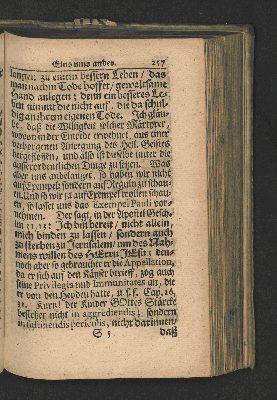 Eins ums ander. 257
langen zu einem bessern Leben / das
man nach m Tode hoffet / gewaltsame
Hand anlegten; denn ein besseres Le-
ben nimmt die nicht auf / die da schul-
dig an ihrem eigenen Tode. Ich gläu-
be, daß die Willigkeit solcher Märtyrer,
wovon in der Einrede erwehnet, aus einer
verborgenen Anregung des Heil. Geistes
hergeflossen, und also ist dieselbe unter die
ausserordentlichen Dinge zu setzen. Was
aber uns anbelanget, so haben wir nicht
auf Exempel sondern auf Reguln zu schau-
en. Und so wir ja auf Exempel wollen schau-
en, so lasset uns das Exempel Pauli vor-
nehmen. Der sagt, in der Apostel Gesch.
21, 13: Ich bin bereit / nicht allein,
mich binden zu lassen / sondern auch
zu sterben zu Jerusalem / um des Nah-
mens willen des HErrn JEsu: den-
noch aber so gebrauchte er die Appellation,
da er sich auf den Käyser berieff, zog auch
seine Privilegia und Immunitates an, die
er von den Heyden hatte, u. s. f. Cap. 16,
22. Kurtz! der Kinder GOttes Stärcke
bestehet nicht in aggrediendis; sondern
in sustinendis periculis, nicht darinnen/
S 5 daß